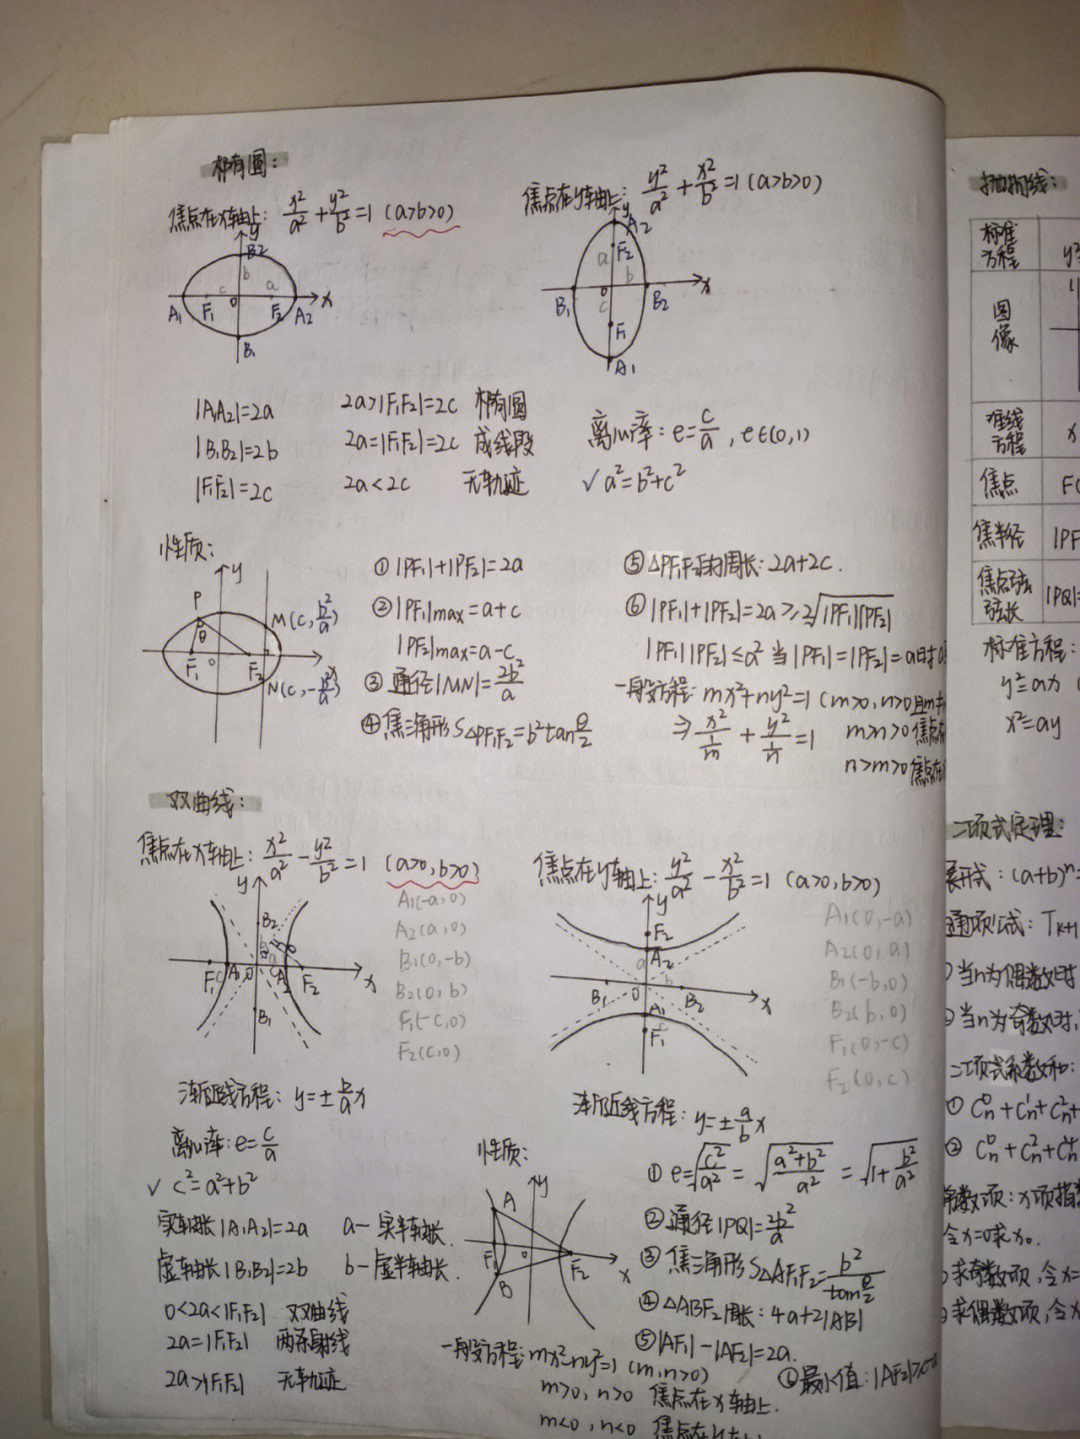 椭圆:
焦点在x轴上: x²/a²+y²/b²=1 (a>b>0)
y
B2
b
c
a
A1 F1 0 F2 A2 x
B1
焦点在y轴上: y²/a²+x²/b²=1 (a>b>0)
y
A2
F2
a
b
B1 0 B2 x
c
F1
A1
|A1A2|=2a
|B1B2|=2b
|F1F2|=2c
2a>|F1F2|=2c 椭圆
2a=|F1F2|=2c 成线段
2a<2c 无轨迹
离心率: e=c/a, e∈(0,1)
√ a²=b²+c²
性质:
y
P
θ
M(c, b²/a)
F1 0 F2 x
N(c, -b²/a)
① |PF1|+|PF2|=2a
② |PF1|max=a+c
|PF2|max=a-c
③ 通径|MN|=2b²/a
④ 焦三角形S△PF1F2=b²tanθ/2
⑤ △PF1F2的周长: 2a+2c.
⑥ |PF1|+|PF2|=2a≥2√|PF1||PF2|
|PF1||PF2|≤a² 当|PF1|=|PF2|=a时
一般方程: mx²+ny²=1 (m>0, n>0且m≠
⇒ x²/(1/m)+y²/(1/n)=1 m>n>0 焦点在
n>m>0 焦点在
双曲线:
焦点在x轴上: x²/a²-y²/b²=1 (a>0,b>0)
y
B2
F1 A1 0 A2 F2 x
B1
A1(-a,0)
A2(a,0)
B1(0,-b)
B2(0,b)
F1(-c,0)
F2(c,0)
渐近线方程: y=±b/a x
焦点在y轴上: y²/a²-x²/b²=1 (a>0,b>0)
y
F2
a
A2
b
B1 0 B2 x
A1
F1
A1(0,-a)
A2(0,a)
B1(-b,0)
B2(b,0)
F1(0,-c)
F2(0,c)
渐近线方程: y=±a/b x
离心率: e=c/a
√ c²=a²+b²
实轴长|A1A2|=2a a-实半轴长.
虚轴长|B1B2|=2b b-虚半轴长.
0<2a<|F1F2| 双曲线
2a=|F1F2| 两条射线
2a>|F1F2| 无轨迹
性质:
y
A
F1 0 F2 x
B
① e=√c²/a²=√(a²+b²)/a²=√1+b²/a²
② 通径|PQ|=2b²/a
③ 焦三角形S△AF1F2=b²/tanθ/2
④ △ABF2周长: 4a+2|AB|
⑤ |AF1|-|AF2|=2a.
⑥ 最小值: |AF2|>
一般方程: mx²-ny²=1 (m,n>0)
m>0, n>0 焦点在x轴上.
m<0, n<0 焦点在y轴上
抛物线:
标准方程
图像
准线方程 x
焦点 F(
焦半径 |PF
焦点弦弦长 |PQ|=
标准方程:
y²=ax
x²=ay
二项式定理:
展开式: (a+b)ⁿ=
通项公式: Tk+1
当n为偶数时
当n为奇数时,
二项式系数和:
① Cn⁰+Cn¹+Cn²+
② Cn⁰+Cn²+Cn⁴
常数项: x项指数
令x=0求x0.
求奇数项,令x=
求偶数项,令x